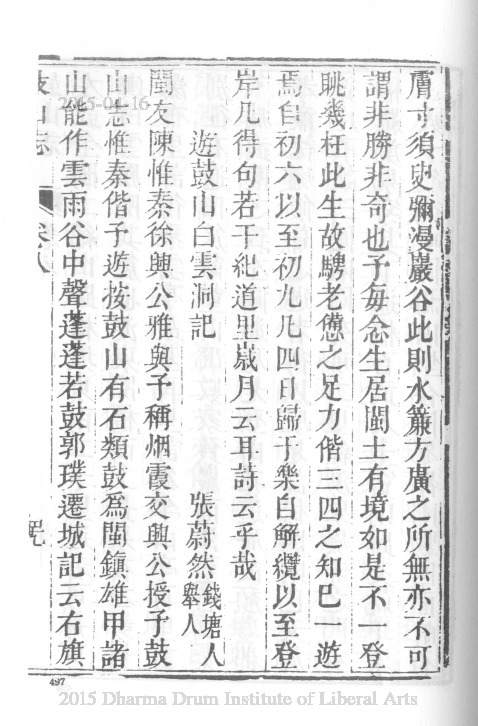 膚寸須臾彌漫巖谷此則水簾方廣之所無亦不可
謂非勝非奇也予每念生居閩土有境如是不一登
眺幾枉此生故騁老憊之足力偕三四之知巳一遊
焉自初六以至初九凡四日歸于樂自解纜以至登
岸凡得句若干紀道里歲月云耳詩云乎哉
遊鼓山白雲洞記 張蔚然 錢塘人舉人
閩友陳惟秦徐興公雅與予稱烟霞交興公授予鼓
山志惟秦偕予遊按鼓山有石類鼓為閩鎮雄甲諸
山能作雲雨谷中聲蓬蓬若鼓郭璞遷城記云右旗
鼓山志 卷八
2015-04-16
497
2015 Dharma Drum Institute of Liberal Arts